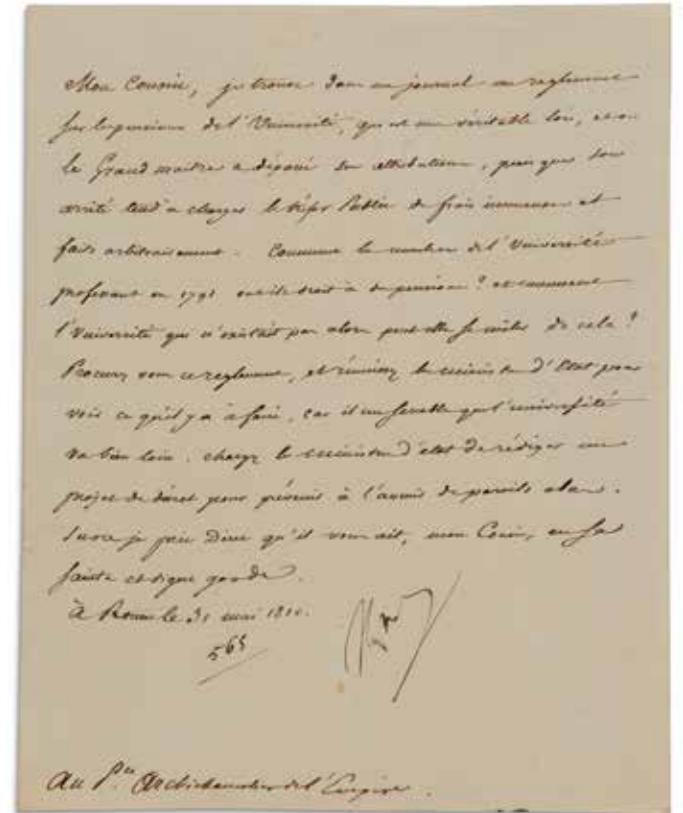 Mon Cousin, je trouve dans un journal un reglement
sur les pensions de l'Université, qui est une véritable loi, et où
le Grand maitre a dépassé ses attributions, puisque son
arrêté tend à charger le trésor Public de frais immenses et
faits arbitrairement. Comment les membres de l'Université
professant en 1791 ont-ils droit à des pensions ? et comment
l'Université qui n'existait pas alors peut-elle se mêler de cela ?
Procurez vous ce reglement, et réunissez les ministres d'Etat pour
voir ce qu'il y a à faire, car il me semble que l'université
va bien loin. chargez les ministres d'état de rédiger un
projet de décret pour prévenir à l'avenir de pareils abus.
Sur ce je prie Dieu qu'il vous ait, mon Cousin, en sa
sainte et digne garde.
à Rouen le 31 mai 1810.
565
Au P.ce Archichancelier de l'Empire.